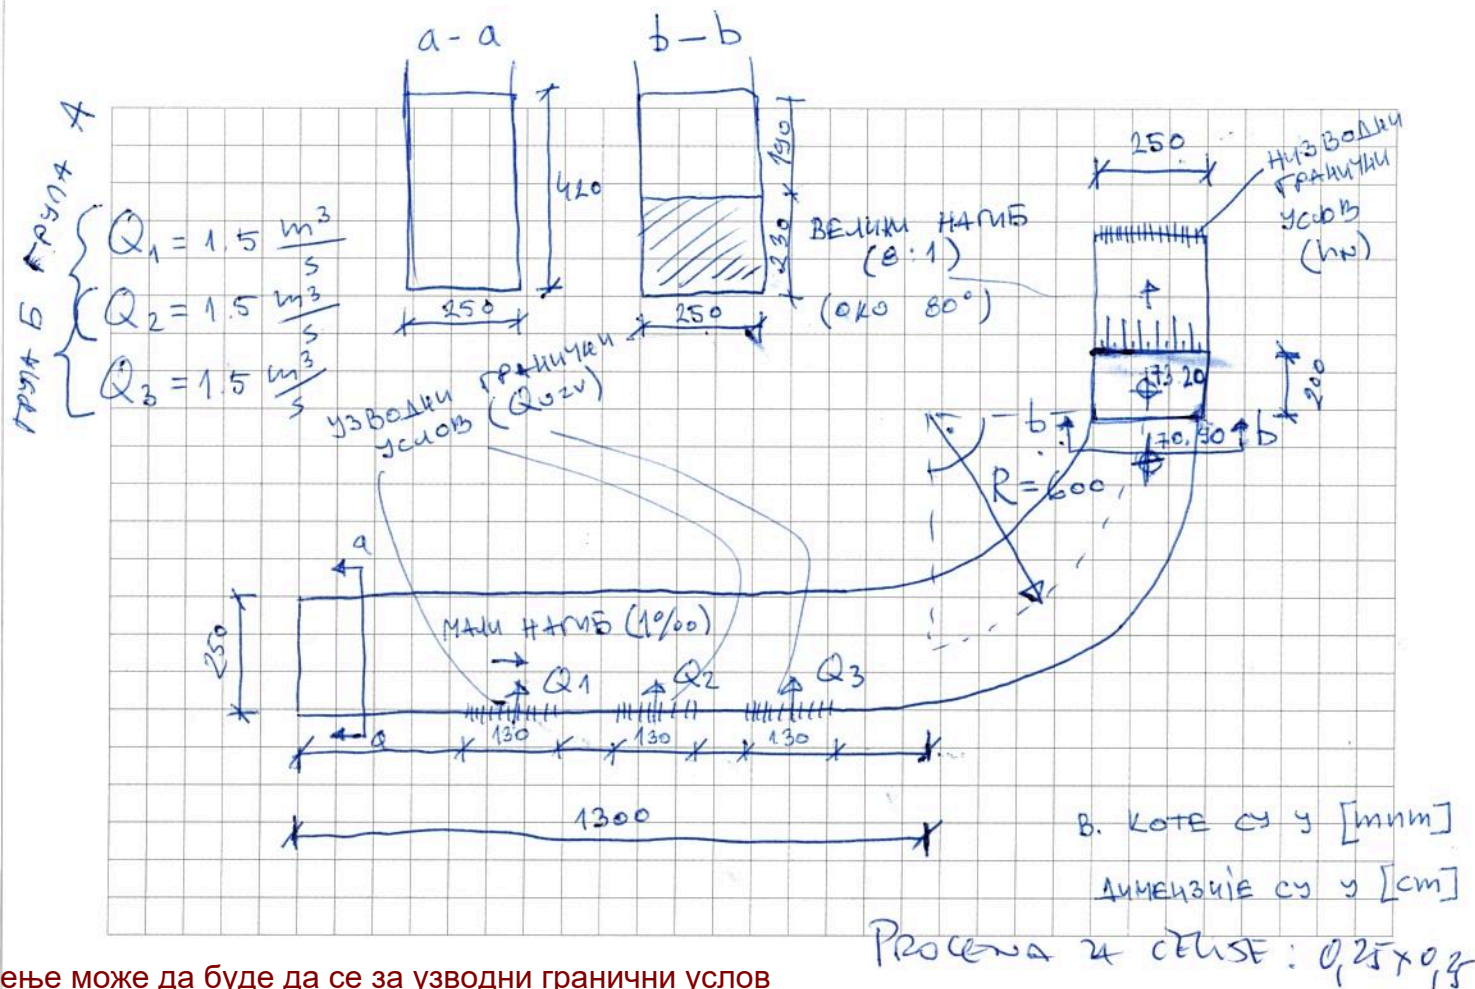 a - a
b - b
ГРУПА А
ГРУПА Б
Q1 = 1.5 m³/s
Q2 = 1.5 m³/s
Q3 = 1.5 m³/s
420
250
190
230
250
ВЕЛИКИ НАГИБ
(8:1)
(ОКО 80°)
250
НИЗВОДНИ
ГРАНИЧНИ
УСЛОВ
(hN)
УЗВОДНИ ГРАНИЧНИ
УСЛОВ (Quzv)
73.20
200
b
70.90
b
R = 600
a
250
МАЛИ НАГИБ (1‰)
Q1
Q2
Q3
a
130
130
130
1300
В. КОТЕ СУ У [mnm]
ДИМЕНЗИЈЕ СУ У [cm]
PROCENA ZA ĆELIJE: 0,25x0,25
ење може да буде да се за узводни гранични услов